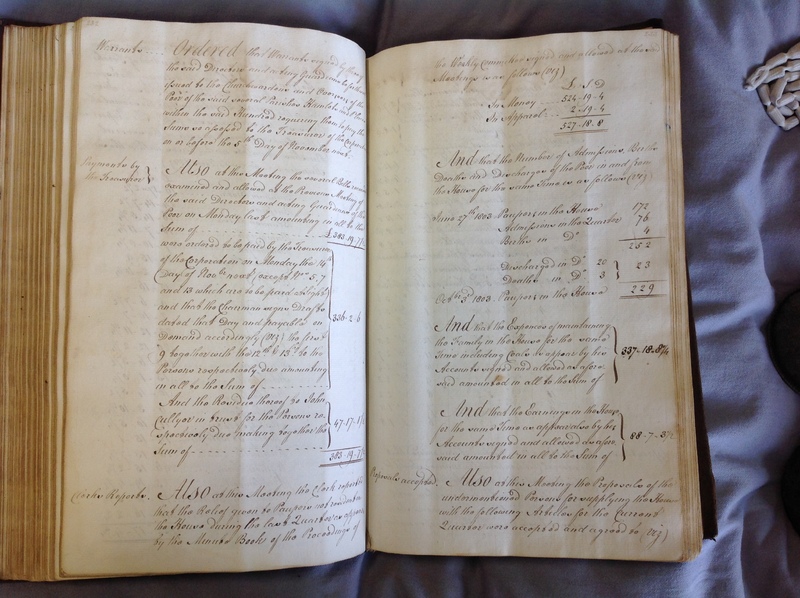 Warrants Ordered that Warrants signed by
the said Directors and acting Guardians be
issued to the Churchwardens and Overseers of the
Poor of the said several Parishes Hamlets and Places
within the said Hundred requiring them to pay the
same so assessed to the Treasurer of the Corporation
on or before the 5th Day of November next.
Payments by
the Treasurer
Also at this Meeting the several Bills
examined and allowed at the Previous Meeting of
the said Directors and acting Guardians of the
Poor on Monday last amounting in all to the
Sum of £383-19-7½
were ordered to be paid by the Treasurer
of the Corporation on Monday the
Day of Novbr next, except No. 5, 7
and 13 which are to be paid at Sight
and that the Chairman signs Drafts
dated that Day and payable on
Demand accordingly (Viz) the first
9 together with the 12th & 13th to the
Persons respectively due amounting
in all to the Sum of 336-2-6
And the Residue thereof to John
Cullyer in trust for the Persons re-
spectively due making together the
Sum of 47-17-1½
383-19-7½
Clerks Reports. Also at this Meeting the Clerk reported
that the Relief given to Paupers not resident in
the House during the last Quarter as appears
by the Minute Book of the Proceedings of
the Weekly Committee signed and allowed at the said
Meetings was as follows (Viz)
£ S D
In Money 524-19-4
In Apparel 2-19-4
527-18-8
And that the Number of Admissions, Births
Deaths and Discharges of the Poor in and from
the House for the same Time is as follows (Viz)
June 27th 1803 Paupers in the House 172
Admissions in the Quarter 76
Births in Do 4
252
Discharged in Do 20
Deaths in Do 3
23
Octbr 3d 1803 Paupers in the House 229
And that the Expences of maintaining
the Family in the House for the same
Time including Coals as appears by his
Accounts signed and allowed as afore-
said amounted in all to the Sum of
337-18-8¼
And that the Earnings in the House
for the same Time as appeared by his
Accounts signed and allowed as afore-
said amounted in all to the Sum of
88-7-3½
Proposals accepted. Also at this Meeting the Proposals of the
undermentioned Persons for supplying the House
with the following Articles for the Current
Quarter were accepted and agreed to (Viz)